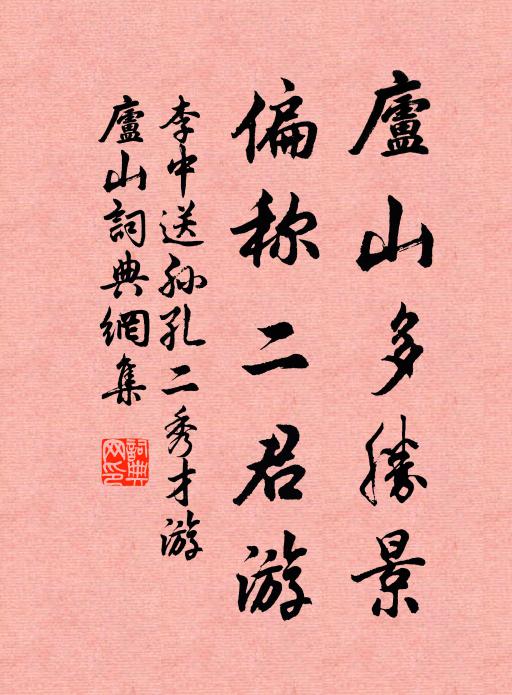 廬山多勝景
偏称二君游
李中送孙孔二秀才游
廬山詞典網集
詞典網印